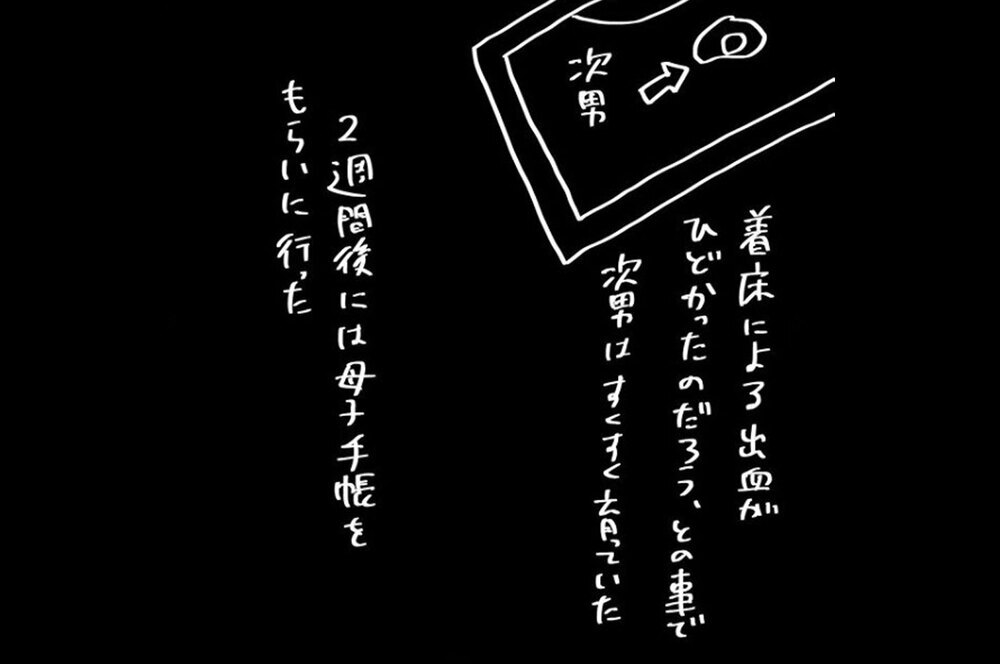 次男
着床による出血が
ひどかったのだろう、との事で
次男はすくすく育っていた
2週間後には母子手帳を
もらいに行った